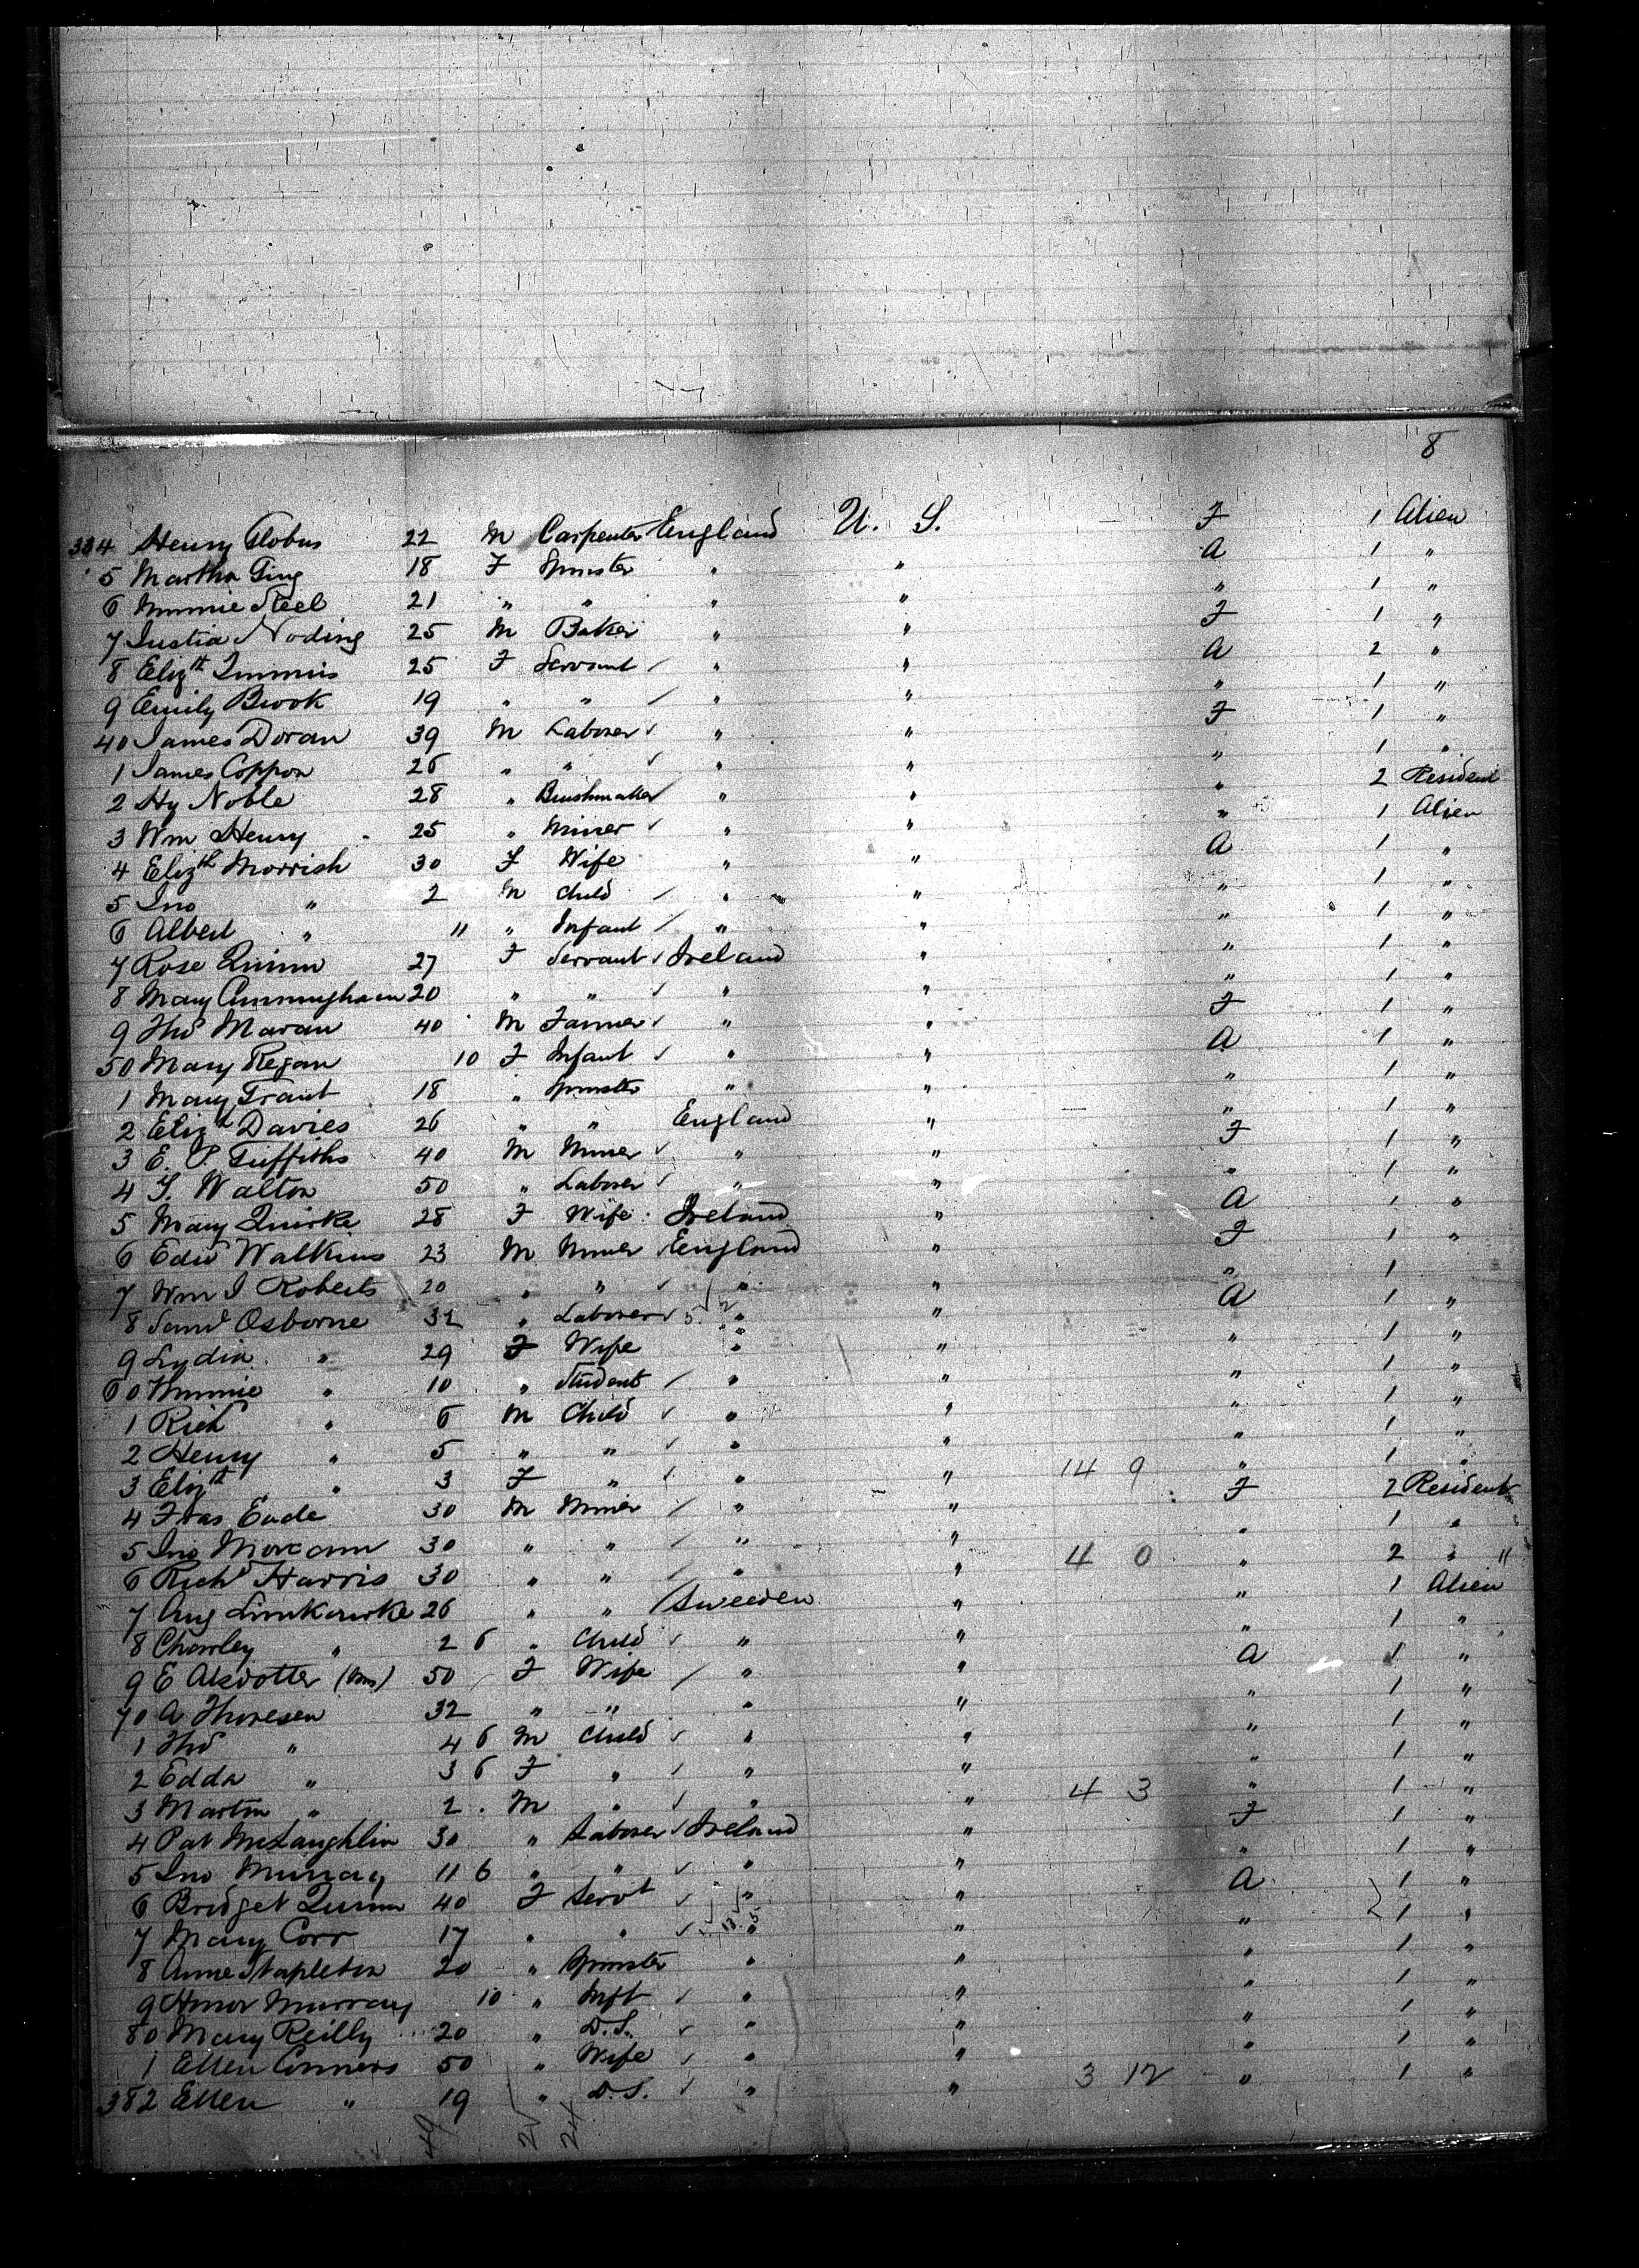 8
334 Henry Globus 22 M Carpenter England U. S. F 1 Alien
5 Martha Ting 18 F Spinster " " A 1 "
6 Minnie Steel 21 " " " " " 1 "
7 Noding 25 M Baker " " F 1 "
8 Elizth Timmis 25 F Servant " " A 2 "
9 Emily Brook 19 " " " " " 1 "
40 James Doran 39 M Laborer " " F 1 "
1 James Coppon 26 " " " " " 1 "
2 Hy Noble 28 " Brushmaker " " " 2 Resident
3 Wm Henry 25 " Miner " " " 1 Alien
4 Elizth Morrish 30 F Wife " " A 1 "
5 Jno " 2 M Child " " " 1 "
6 Albert " 11 " Infant " " " 1 "
7 Rose Quinn 27 F Servant Ireland " " 1 "
8 Mary Cunningham 20 " " " " " 1 "
9 Thos Maran 40 M Farmer " " F 1 "
50 Mary Regan 10 F Infant " " A 1 "
1 Mary Grant 18 " Spinster " " " 1 "
2 Elizth Davies 26 " " England " " 1 "
3 E. P. Griffiths 40 M Miner " " F 1 "
4 Walton 50 " Laborer " " " 1 "
5 Mary Quirke 28 F Wife Ireland " A 1 "
6 Edw Watkins 23 M Miner England " F 1 "
7 Wm J Roberts 20 " " " " " 1
8 Saml Osborne 32 " Laborer " " A 1 "
9 Lydia " 29 F Wife " " " 1 "
60 Minnie " 10 " Student " " " 1 "
1 Richd " 6 M Child " " " 1 "
2 Henry " 5 " " " " " 1 "
3 Elizth " 3 F " " " 14 9 " 1 "
4 Fras Eade 30 M Miner " " F 2 Resident
5 Jno 30 " " " " " 1 "
6 Richd Harris 30 " " " " 4 0 " 2 " "
7 Aug 26 " " Sweeden " " 1 Alien
8 Charley " 2 6 " Child " " " 1 "
9 E Alsdotter (Mrs) 50 F Wife " " A 1 "
70 A Thoresen 32 " " " " " 1 "
1 Thos " 4 6 M Child " " " 1 "
2 Edda " 3 6 F " " " " 1 "
3 Martin " 2 M " " " 4 3 " 1 "
4 Pat McLaughlin 30 " Laborer Ireland " F 1 "
5 Jno Murray 11 6 " " " " " 1 "
6 Bridget Quinn 40 F Servt " " A 1 "
7 Mary Corr 17 " " " " " 1 "
8 Anne Stapleton 20 " Spinster " " " 1 "
9 Honor Murray 10 " Inft " " " 1 "
80 Mary Reilly 20 " D.S. " " " 1 "
1 Ellen Conners 50 " Wife " " " 1 "
382 Ellen " 19 " D.S. " " 3 12 " 1 "
49 25 24